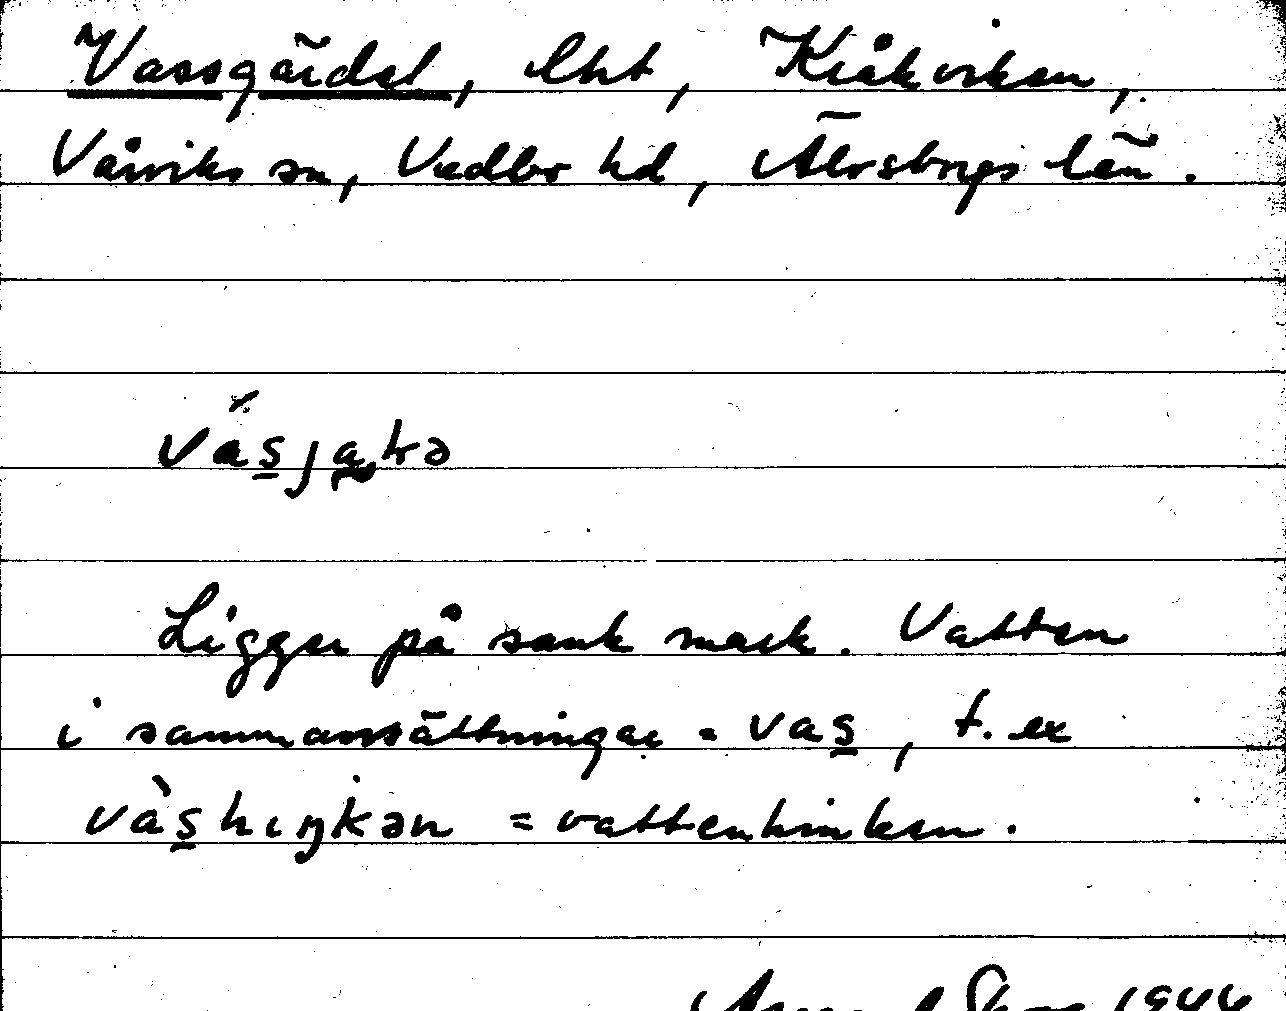 Vassgärdet, lht, Kråkviken,
Vårviks sn, Vedbo hd, Älvsborgs län.
Ligger på sank mark. Vatten
i sammansättningar = vas̱, t. ex
vàs̱hıŋkən = vattenhinken.
1944